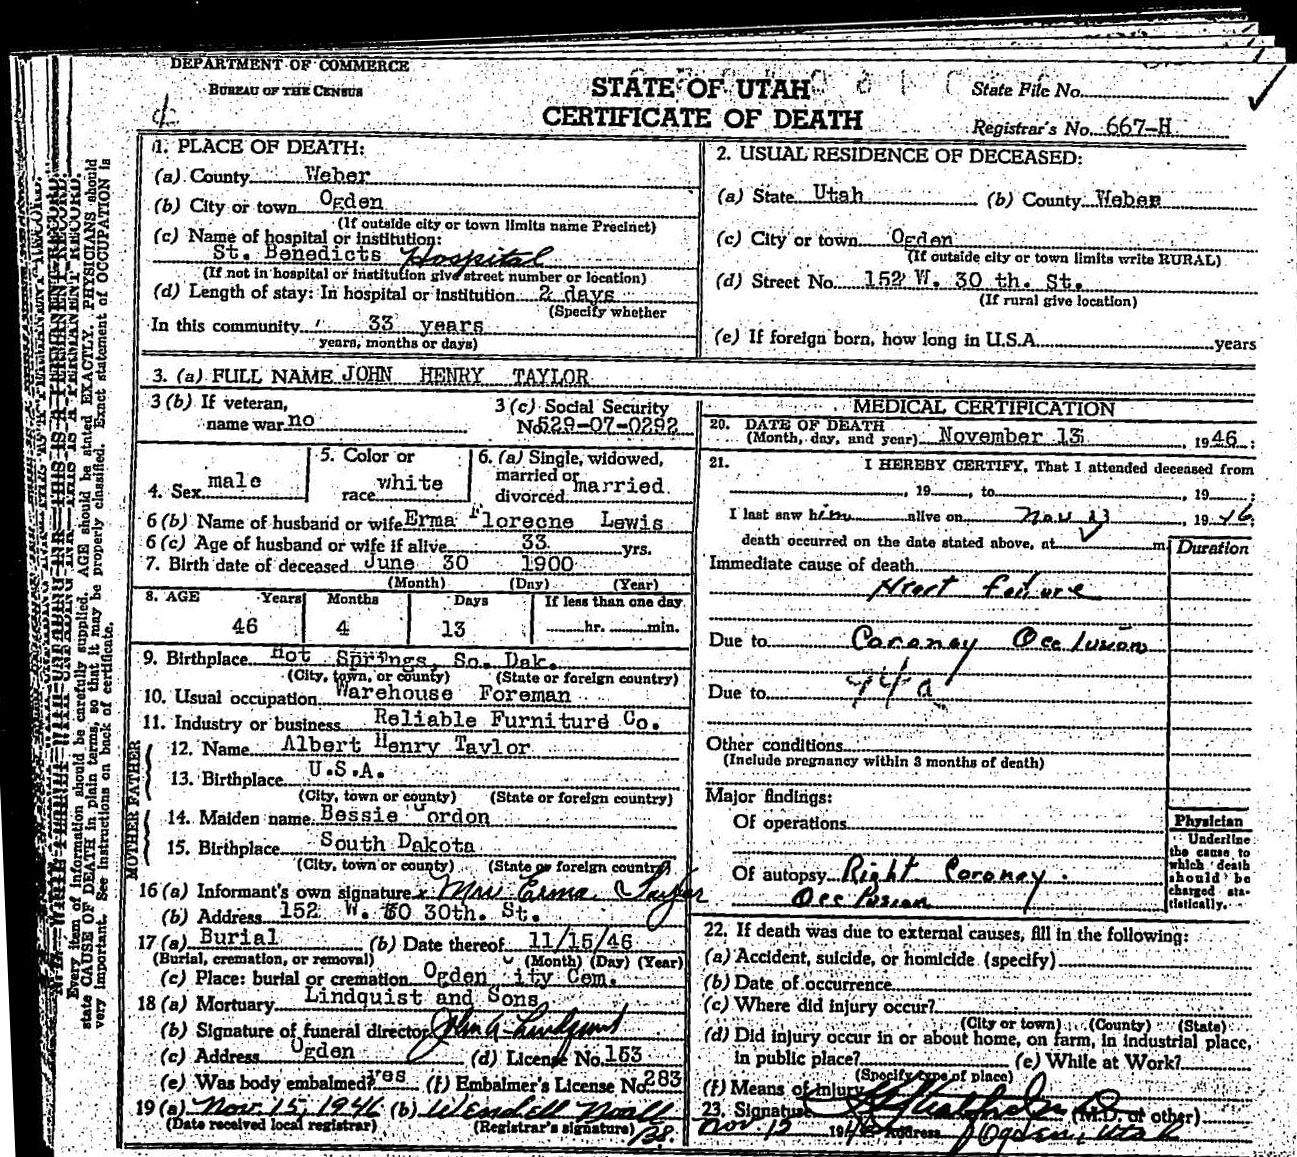 DEPARTMENT OF COMMERCE
BUREAU OF THE CENSUS
STATE OF UTAH
CERTIFICATE OF DEATH
State File No.
Registrar's No. 667-H
1. PLACE OF DEATH:
(a) County Weber
(b) City or town Ogden
(If outside city or town limits name Precinct)
(c) Name of hospital or institution:
St. Benedicts Hospital
(If not in hospital or institution give street number or location)
(d) Length of stay: In hospital or institution 2 days
(Specify whether
In this community 33 years
years, months or days)
2. USUAL RESIDENCE OF DECEASED:
(a) State Utah (b) County Weber
(c) City or town Ogden
(If outside city or town limits write RURAL)
(d) Street No. 152 W. 30 th. St.
(If rural give location)
(e) If foreign born, how long in U.S.A. years
3. (a) FULL NAME JOHN HENRY TAYLOR
3 (b) If veteran,
name war no
3 (c) Social Security
No. 529-07-0292
4. Sex male
5. Color or
race white
6. (a) Single, widowed,
married or
divorced married
6 (b) Name of husband or wife Erma Florecne Lewis
6 (c) Age of husband or wife if alive 33 yrs.
7. Birth date of deceased June 30 1900
(Month) (Day) (Year)
8. AGE Years Months Days If less than one day
46 4 13 hr. min.
9. Birthplace Hot Springs, So. Dak.
(City, town, or county) (State or foreign country)
10. Usual occupation Warehouse Foreman
11. Industry or business Reliable Furniture Co.
FATHER
12. Name Albert Henry Taylor
13. Birthplace U.S.A.
(City, town or county) (State or foreign country)
MOTHER
14. Maiden name Bessie Gordon
15. Birthplace South Dakota
(City, town or county) (State or foreign country)
16 (a) Informant's own signature x Mrs Erma Taylor
(b) Address 152 W. 30th. St.
17 (a) Burial (b) Date thereof 11/15/46
(Burial, cremation, or removal) (Month) (Day) (Year)
(c) Place: burial or cremation Ogden City Cem.
18 (a) Mortuary Lindquist and Sons
(b) Signature of funeral director John A Lindquist
(c) Address Ogden (d) License No. 153
(e) Was body embalmed? yes (f) Embalmer's License No 283
19 (a) Nov. 15, 1946 (b) Wendell Noall
(Date received local registrar) (Registrar's signature)
MEDICAL CERTIFICATION
20. DATE OF DEATH
(Month, day, and year) November 13, 1946;
21. I HEREBY CERTIFY, That I attended deceased from
, 19 , to , 19 ;
I last saw him alive on Nov 13, 1946;
death occurred on the date stated above, at m.
Duration
Immediate cause of death
Heart failure
Due to Coronay Occlusion
Due to 94a
Other conditions
(Include pregnancy within 3 months of death)
Major findings:
Of operations
Of autopsy Right Coronay
Occlusion
Physician
Underline
the cause to
which death
should be
charged sta-
tistically.
22. If death was due to external causes, fill in the following:
(a) Accident, suicide, or homicide (specify)
(b) Date of occurrence
(c) Where did injury occur?
(City or town) (County) (State)
(d) Did injury occur in or about home, on farm, in industrial place,
in public place? (e) While at Work?
(Specify type of place)
(f) Means of Injury
23. Signature (M.D. or other)
Nov. 1946 Address Ogden, Utah
Every item of information should be carefully supplied. AGE should be stated EXACTLY. PHYSICIANS should
state CAUSE OF DEATH in plain terms, so that it may be properly classified. Exact statement of OCCUPATION is
very important. See instructions on back of certificate.